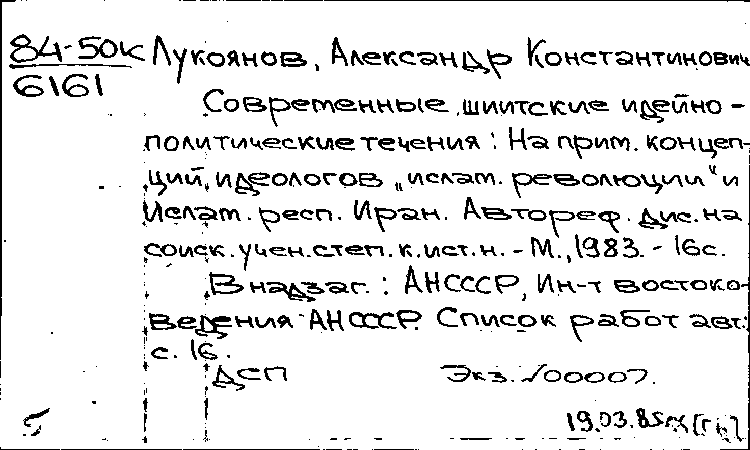 84-50к Лукоянов, Александр Константинович
6161
Современные шиитские идейно-
политические течения: На прим. концеп-
ций идеологов „ислам. революции" и
Ислам. респ. Иран. Автореф. дис. на
соиск. учен. степ. к. ист. н. - М., 1983. - 16с.
В надзаг.: АНСССР, Ин-т востоко-
ведения АНСССР. Список работ авт.:
с. 16.
ДСП Экз. √00007.
19.03.85